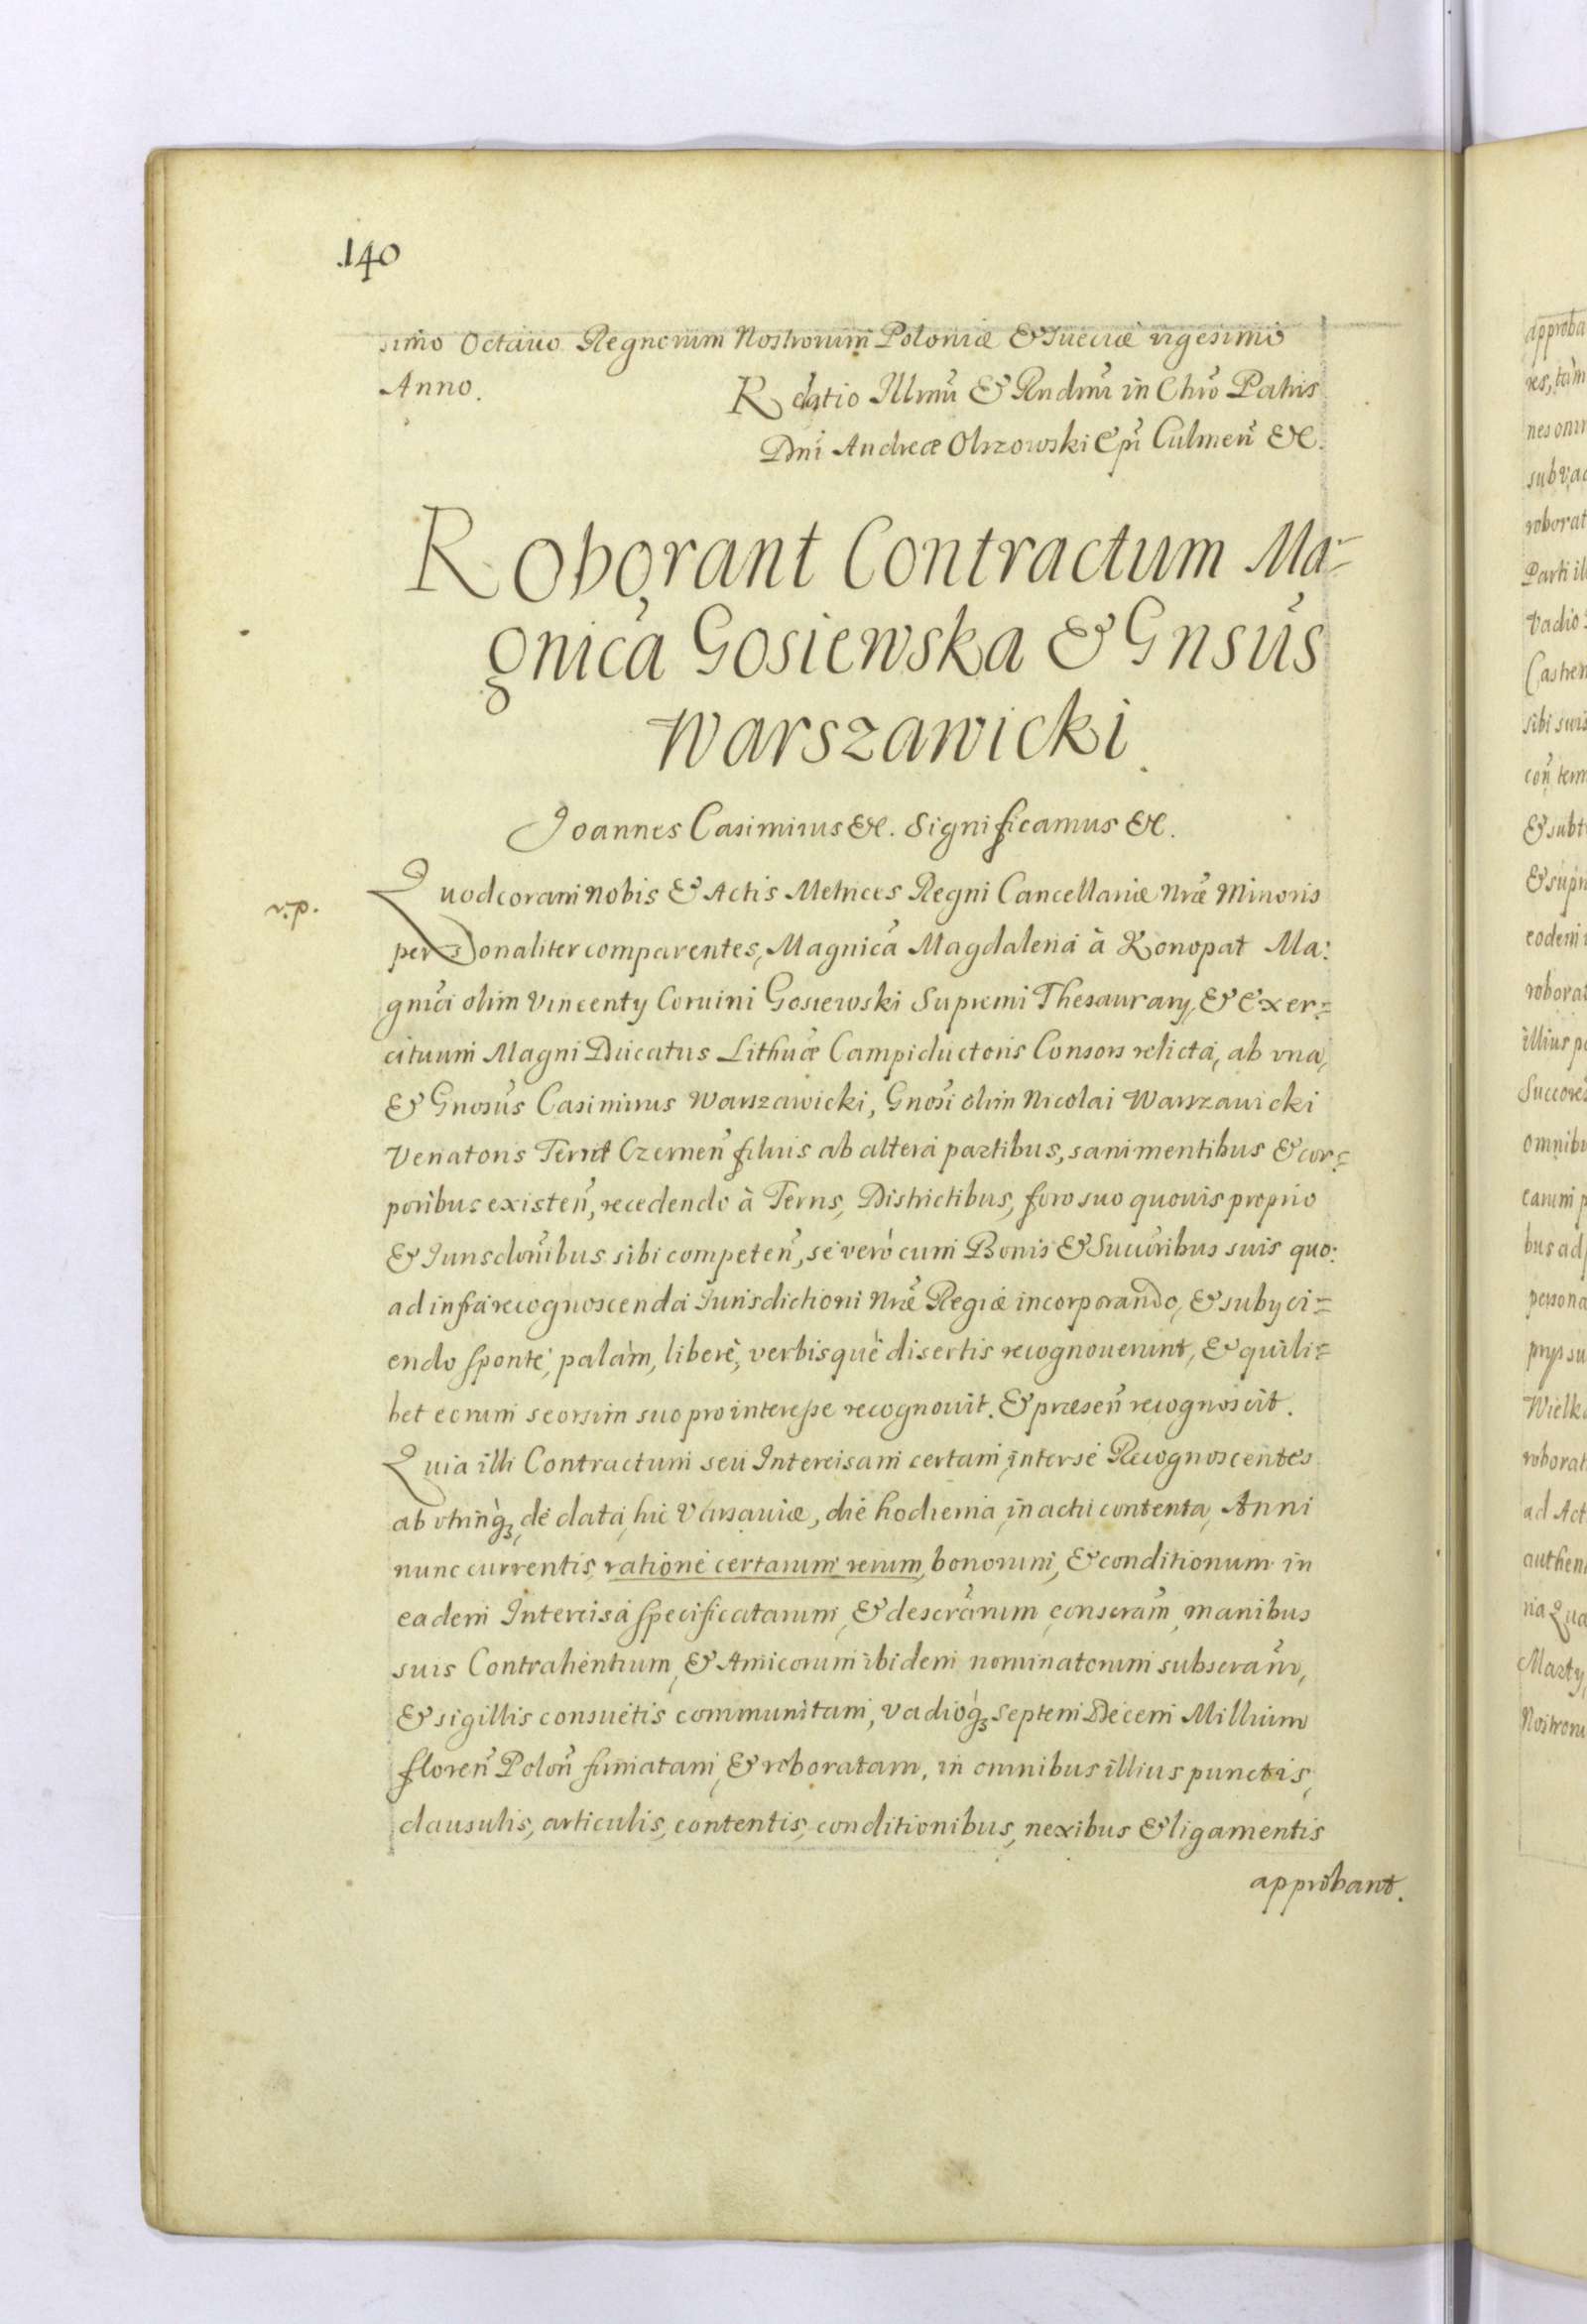 140
simo Octauo Regnorum Nostrorum Poloniæ & Sueciæ vigesimo
Anno.
Relatio Illmi & Rndmi in Chro Patris
Dni Andreæ Olszowski Epi Culmen &c.
Roborant Contractum Ma-
gnica Gosiewska & Gnsus
Warszawicki.
Joannes Casimirus &c. Significamus &c.
r.p.
Quod coram nobis & Actis Metrices Regni Cancellariæ Nræ Minoris
personaliter comparentes, Magnica Magdalena à Konopat Ma:
gnici olim Vincenty Coruini Gosiewski Supremi Thesaurary, & Exer=
cituum Magni Ducatus Lithuæ Campiductoris Consors relicta, ab vna,
& Gnosus Casimirus Warszawicki, Gnosi olim Nicolai Warszawicki
Venatoris Territ Czernen filius ab altera partibus, sani mentibus & cor=
poribus existen, recedendo à Terris, Districtibus, foro suo quouis proprio
& Jurisdonibus sibi competen, se verò cum Bonis & Succribus suis quo:
ad infra recognoscenda Jurisdictioni Nræ Regiæ incorporando, & subyci=
endo sponte, palàm, liberè, verbisquè disertis recognouerunt, & quili=
bet eorum seorsim suo pro interesse recognouit. & præsen recognoscit.
Quia illi Contractum seu Intercisam certam, inter se Recognoscentes
ab vtrinq3, de data, hic Varsauiæ, die hodierna, in actu contenta, Anni
nunc currentis, ratione certarum rerum, bonorum, & conditionum in
eadem Intercisa specificatarum, & descrarum, conscram, manibus
suis Contrahentium, & Amicorum ibidem nominatorum subscram,
& sigillis consuetis communitam, vadioq3 septem Decem Millium
floren Polon firmatam, & roboratam, in omnibus illius punctis,
clausulis, articulis, contentis, conditionibus, nexibus & ligamentis
approbant.